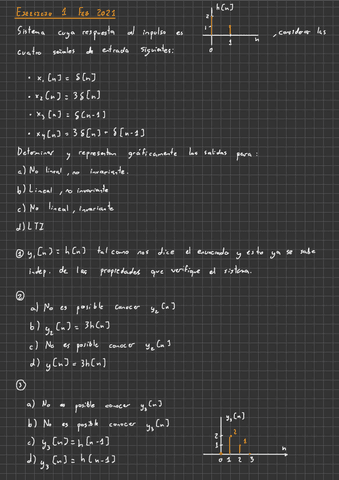 Ejercicio 1 Feb 2021
Sistema cuya respuesta al impulso es
h[n]
2
1
0
1
n
, considerar las
cuatro señales de entrada siguientes:
• x₁[n] = δ[n]
• x₂[n] = 3δ[n]
• x₃[n] = δ[n-1]
• x₄[n] = 3δ[n] + δ[n-1]
Determinar y representar gráficamente las salidas para:
a) No lineal, no invariante.
b) Lineal, no invariante
c) No lineal, invariante
d) LTI
① y₁[n] = h[n] tal como nos dice el enunciado y esto ya se sabe
indep. de las propiedades que verifique el sistema.
②
a) No es posible conocer y₂[n]
b) y₂[n] = 3h[n]
c) No es posible conocer y₂[n]
d) y[n] = 3h[n]
③
a) No es posible conocer y₃[n]
b) No es posible conocer y₃[n]
c) y₃[n] = h[n-1]
d) y₃[n] = h[n-1]
y₃[n]
2
1
2
1
0 1 2 3
n